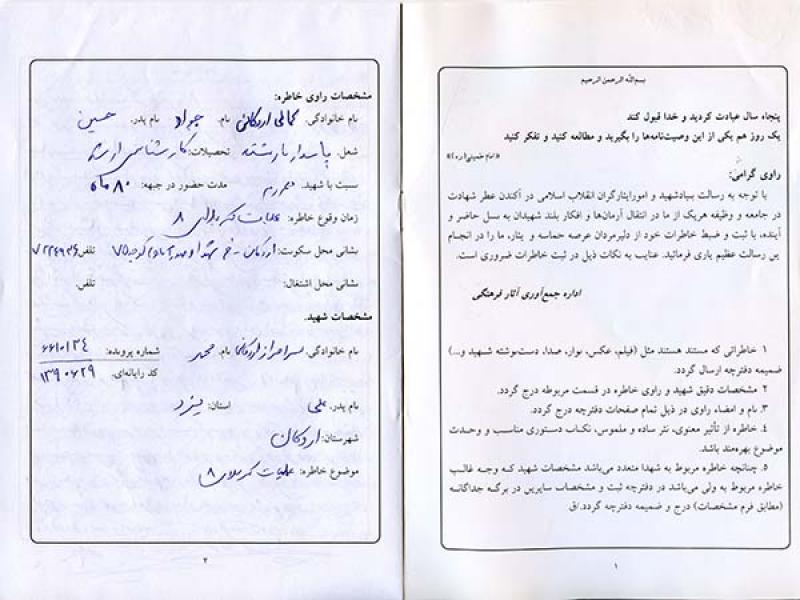 بسم‌الله الرحمن الرحیم
پنجاه سال عبادت کردید و خدا قبول کند
یک روز هم یکی از این وصیت‌نامه‌ها را بگیرید و مطالعه کنید و تفکر کنید
«امام خمینی(ره)»
راوی گرامی:
با توجه به رسالت بنیادشهید و امورایثارگران انقلاب اسلامی در آکندن عطر شهادت
در جامعه و وظیفه هریک از ما در انتقال آرمان‌ها و افکار بلند شهیدان به نسل حاضر و
آینده، با ثبت و ضبط خاطرات خود از دلیرمردان عرصه حماسه و یثار، ما را در انجام
ین رسالت عظیم یاری فرمائید. عنایب به نکات ذیل در ثبت خاطرات ضروری است.
اداره جمع‌آوری آثار فرهنگی
۱ خاطراتی که مستند هستند مثل (فیلم، عکس، نوار، صدا، دست‌نوشته شهید و...)
ضمیمه دفترچه ارسال گردد.
۲ مشخصات دقیق شهید و راوی خاطره در قسمت مربوطه درج گردد.
۳. نام و امضاء راوی در ذیل تمام صفحات دفترچه درج گردد.
۴. خاطره از تأثیر معنوی، نثر ساده و ملموس، نکـاب دستوری مناسب و وحدت
موضوع بهره‌مند باشد.
۵. چنانچه خاطره مربوط به شهدا متعدد می‌باشد مشخصات شهید کـه وجـه غالـب
خاطره مربوط به ولی می‌باشد در دفترچه ثبت و مشخصاب سایرین در برگـه جداگانـه
(مطابق فرم مشخصات) درج و ضمیمه دفترچه گردد./ق
۱
مشخصات راوی خاطره:
نام خانوادگی: کمالی اردکانی نام: جواد نام پدر: حسین
شغل: پاسدار بازنشسته تحصیلات: کارشناسی ارشد
نسبت با شهید: همرزم مدت حضور در جبهه: ۸۰ ماه
زمان وقوع خاطره: عملیات کربلای ۸
نشانی محل سکونت: تلفن: ۷۲۲۴۹۳۴
نشانی محل اشتغال: تلفن:
مشخصات شهید:
نام خانوادگی: سرافراز اردکانی نام: محمد شماره پرونده: ۶۶۱۰۱۳۴
کد رایانه‌ای: ۱۳۹۰۶۲۹
نام پدر: علی استان: یزد
شهرستان: اردکان
موضوع خاطره: عملیات کربلای ۸
۲